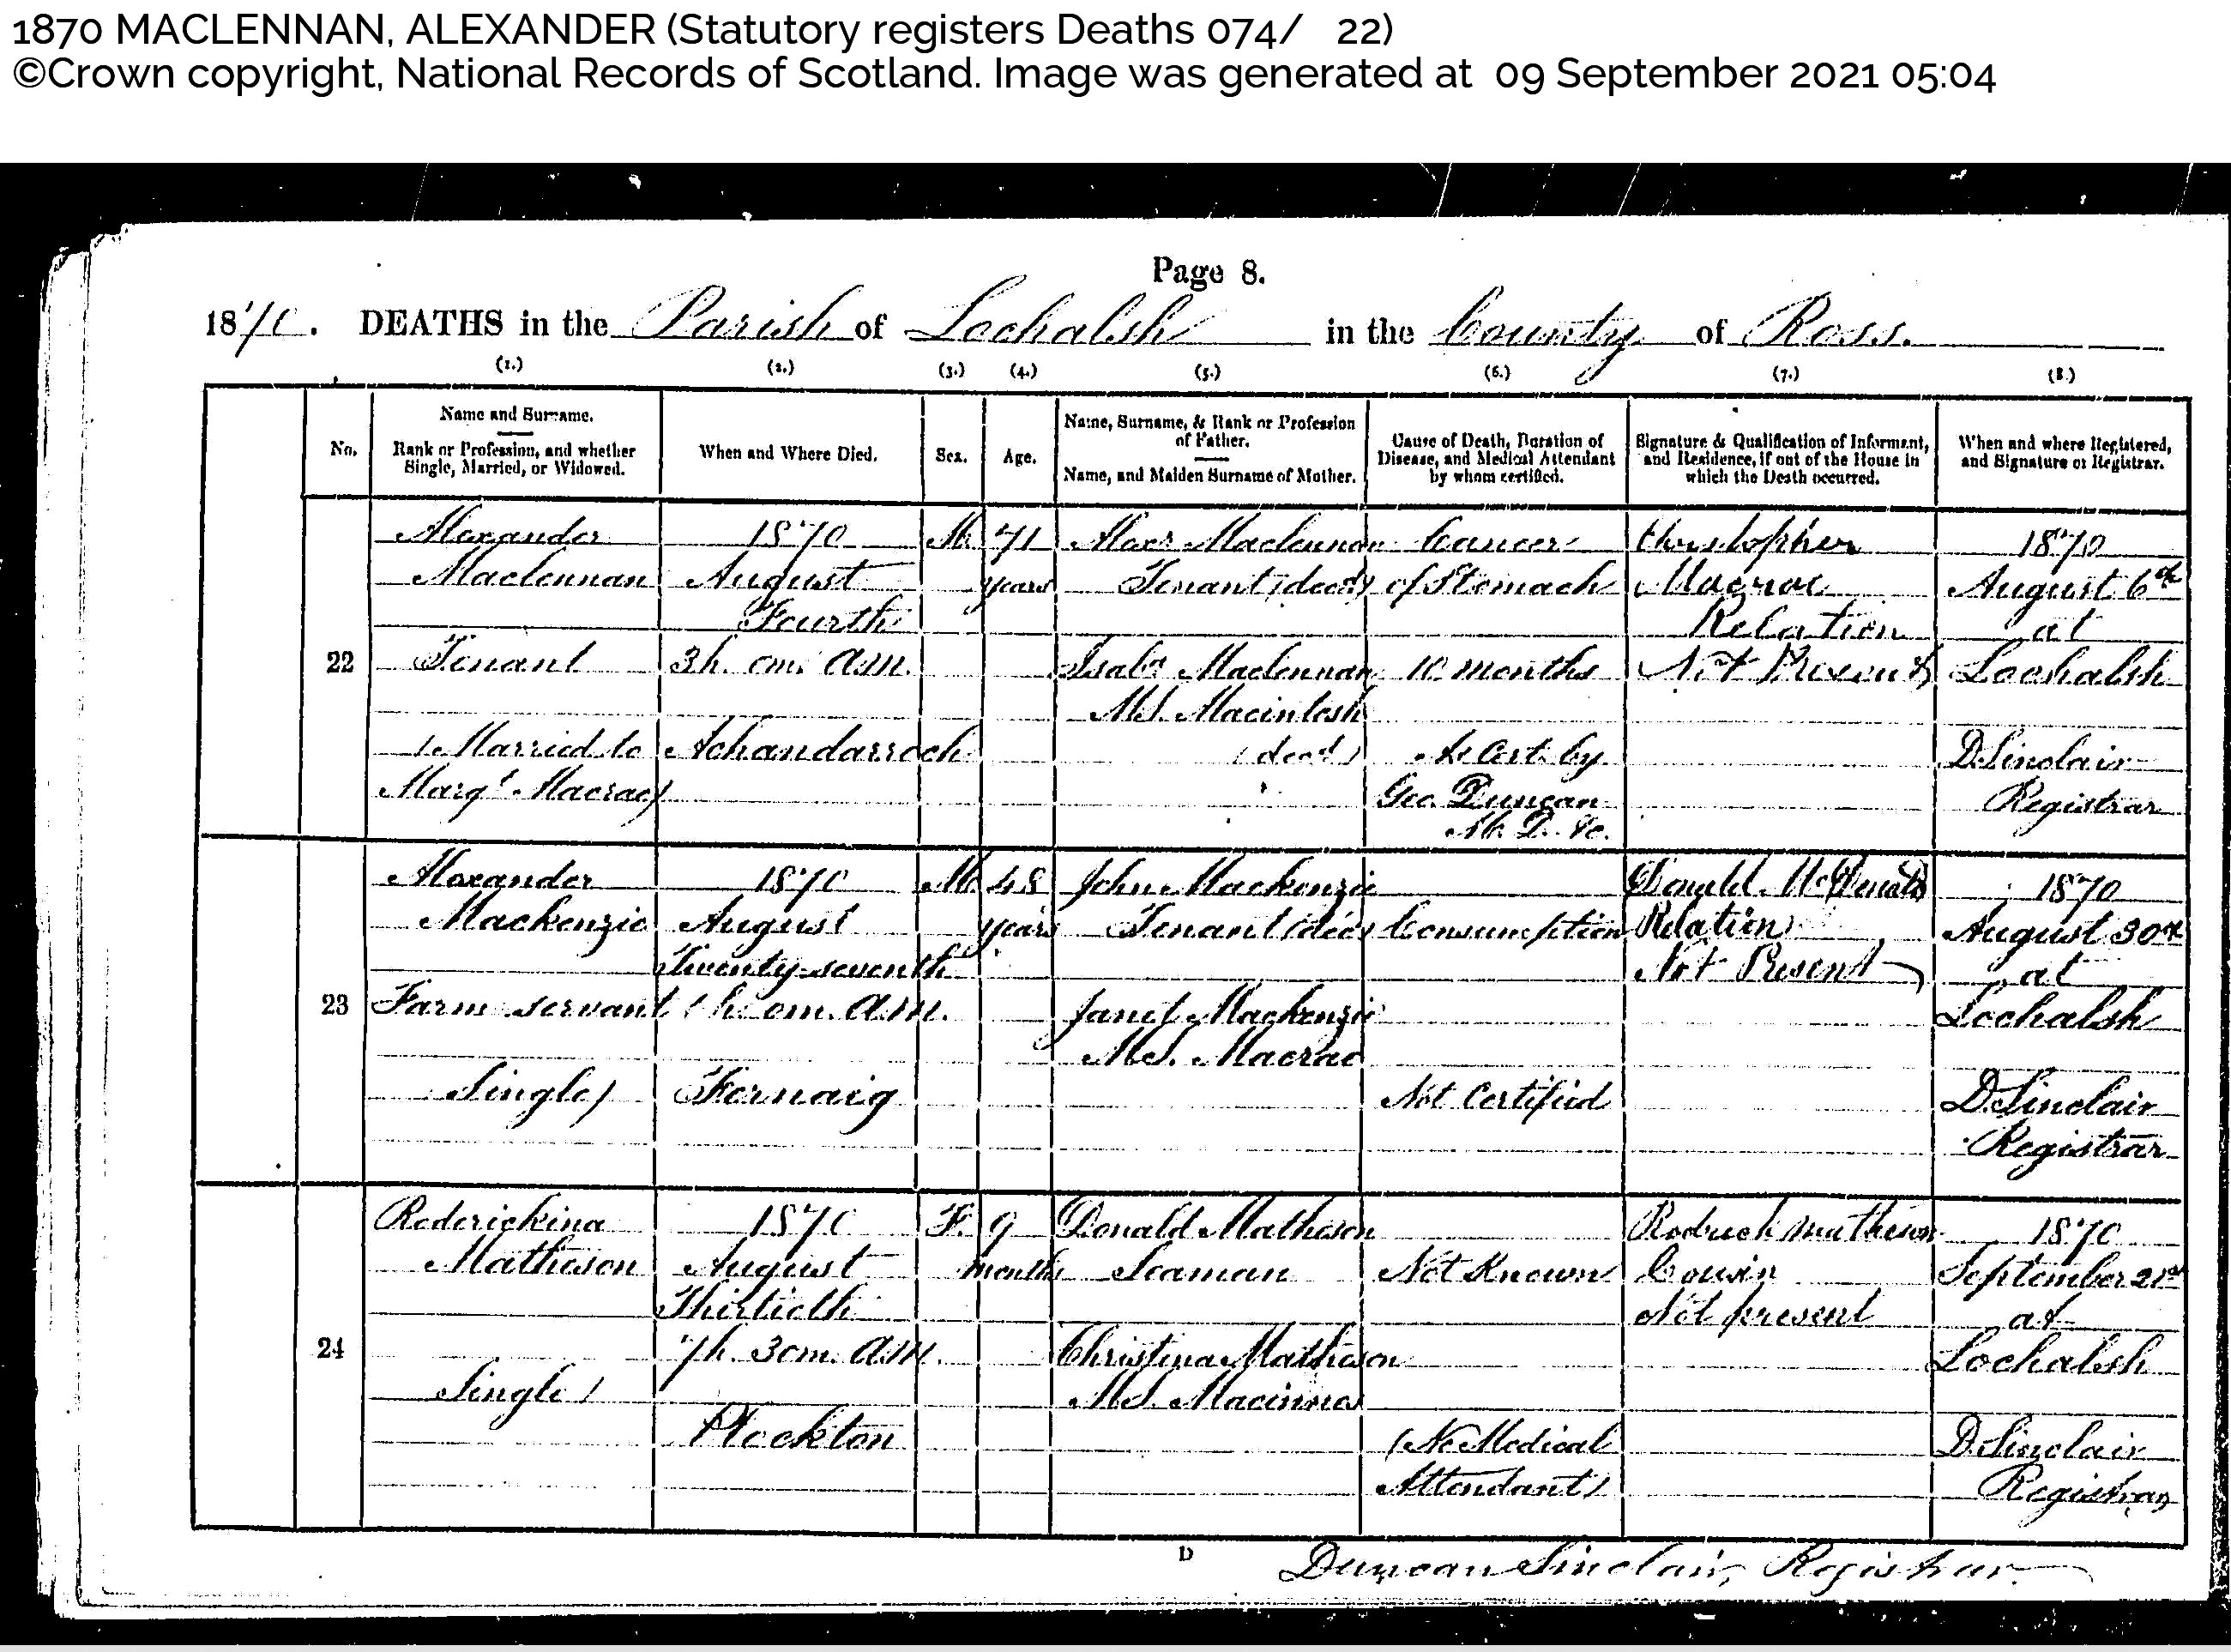 1870 MACLENNAN, ALEXANDER (Statutory registers Deaths 074/ 22)
©Crown copyright, National Records of Scotland. Image was generated at 09 September 2021 05:04
Page 8.
1870. DEATHS in the Parish of Lochalsh in the County of Ross.
(1.) (2.) (3.) (4.) (5.) (6.) (7.) (8.)
No.
Name and Surname.
Rank or Profession, and whether
Single, Married, or Widowed.
When and Where Died.
Sex.
Age.
Name, Surname, & Rank or Profession
of Father.
Name, and Maiden Surname of Mother.
Cause of Death, Duration of
Disease, and Medical Attendant
by whom certified.
Signature & Qualification of Informant,
and Residence, if out of the House in
which the Death occurred.
When and where Registered,
and Signature of Registrar.
22
Alexander
Maclennan
Tenant
(Married to
Margt Macrae)
1870
August
Fourth
3h. 0m. A.M.
Achandarroch
M.
71
years
Alexr Maclennan
Tenant (decd)
Isaba Maclennan
M.S. Macintosh
(decd)
Cancer
of Stomach
10 months
As Cert. by
Geo. Duncan
M. D. &c.
Christopher
Macrae
Relation
Not Present
1870
August 6th
at
Lochalsh
D. Sinclair
Registrar
23
Alexander
Mackenzie
Farm servant
Single)
1870
August
Twenty seventh
1h. 0m. A.M.
Fernaig
M.
48
years
John Mackenzie
Tenant (decd
Janet Mackenzie
M.S. Macrae
Consumption
Not Certified
Donald McDonald
Relation
Not Present
1870
August 30th
at
Lochalsh
D. Sinclair
Registrar
24
Roderickina
Matheson
Single)
1870
August
Thirtieth
7h. 30m. A.M.
Plockton
F.
9
months
Donald Matheson
Seaman
Christina Matheson
M.S. Macinnes
Not Known
(No Medical
Attendant)
Rodrick Matheson
Cousin
Not present
1870
September 21st
at
Lochalsh
D. Sinclair
Registrar
D
Duncan Sinclair, Registrar.